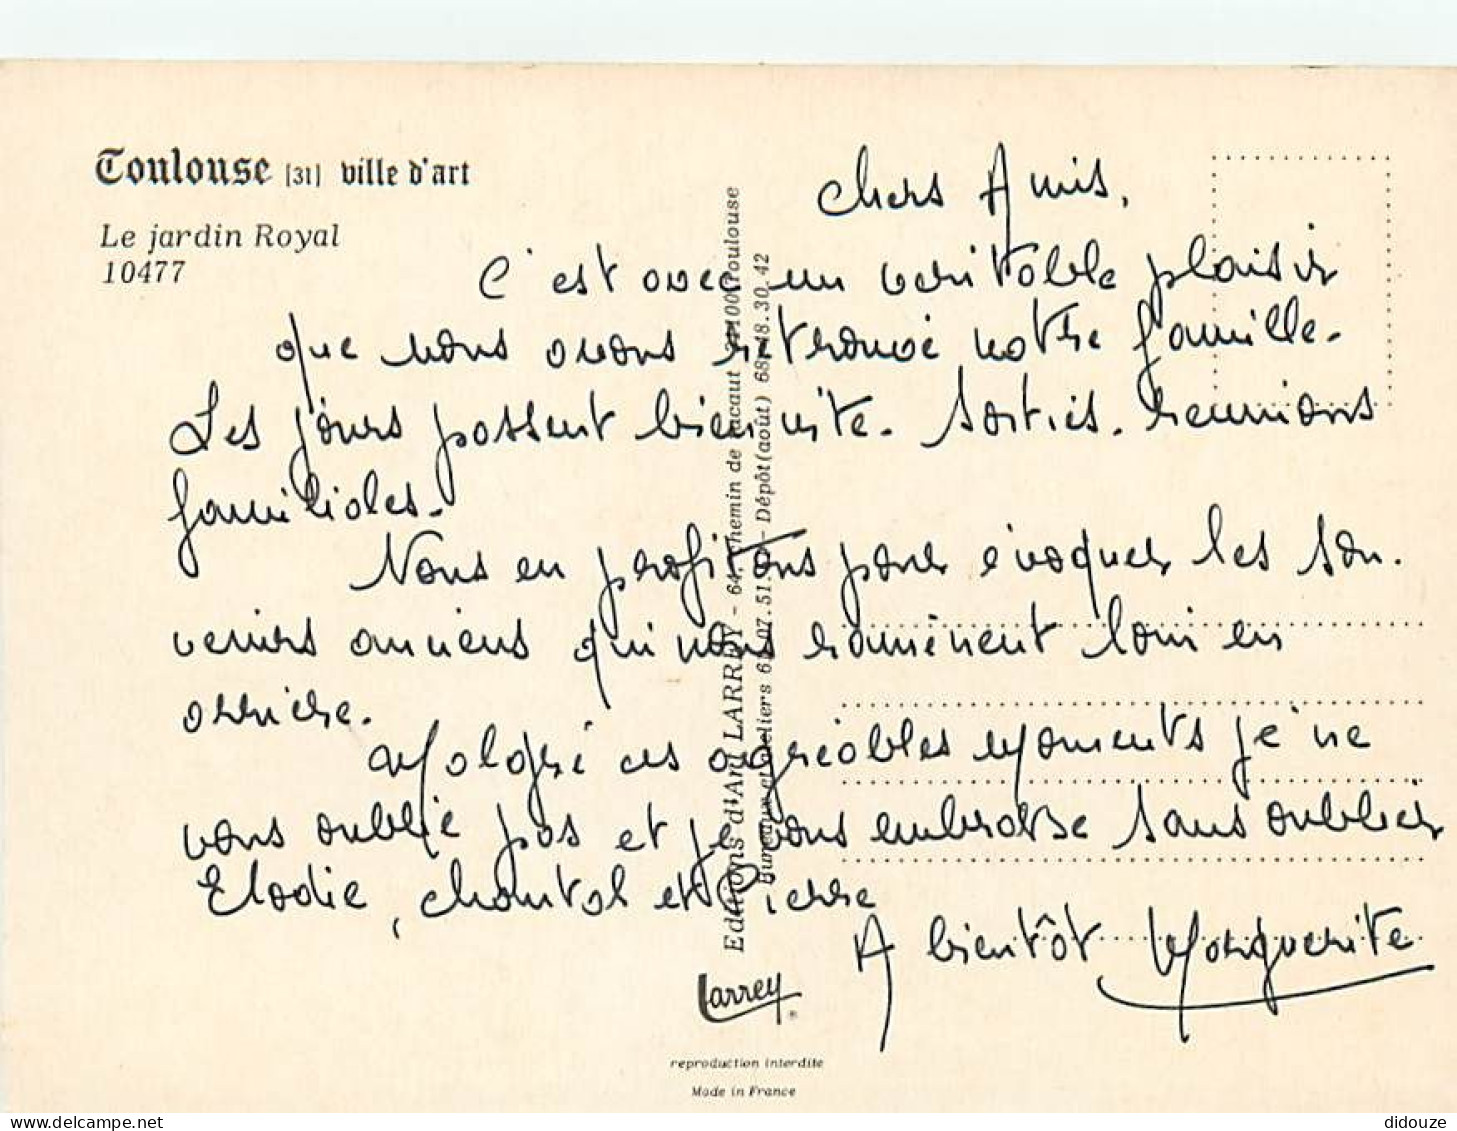 Toulouse [31] ville d'art
Le jardin Royal
10477
Chers Amis,
C'est avec un veritable plaisir
que nous avons retrouvé notre famille.
Les jours passent bien vite. Sorties. reunions
familiales.
Nous en profitons pour évoquer les sou.
venirs anciens qui nous ramènent loin en
arriere.
Malgré ces agréables moments je ne
vous oublie pas et je vous embrasse sans oublier
Elodie, Chantal et Pierre
A bientôt Marguerite
Editions d'Art LARREY - 64, Chemin de Lacaut 31100 Toulouse
Bureaux et ateliers - Dépôt (août) 68.48.30.42
Larrey
reproduction interdite
Made in France
didouze
delcampe.net